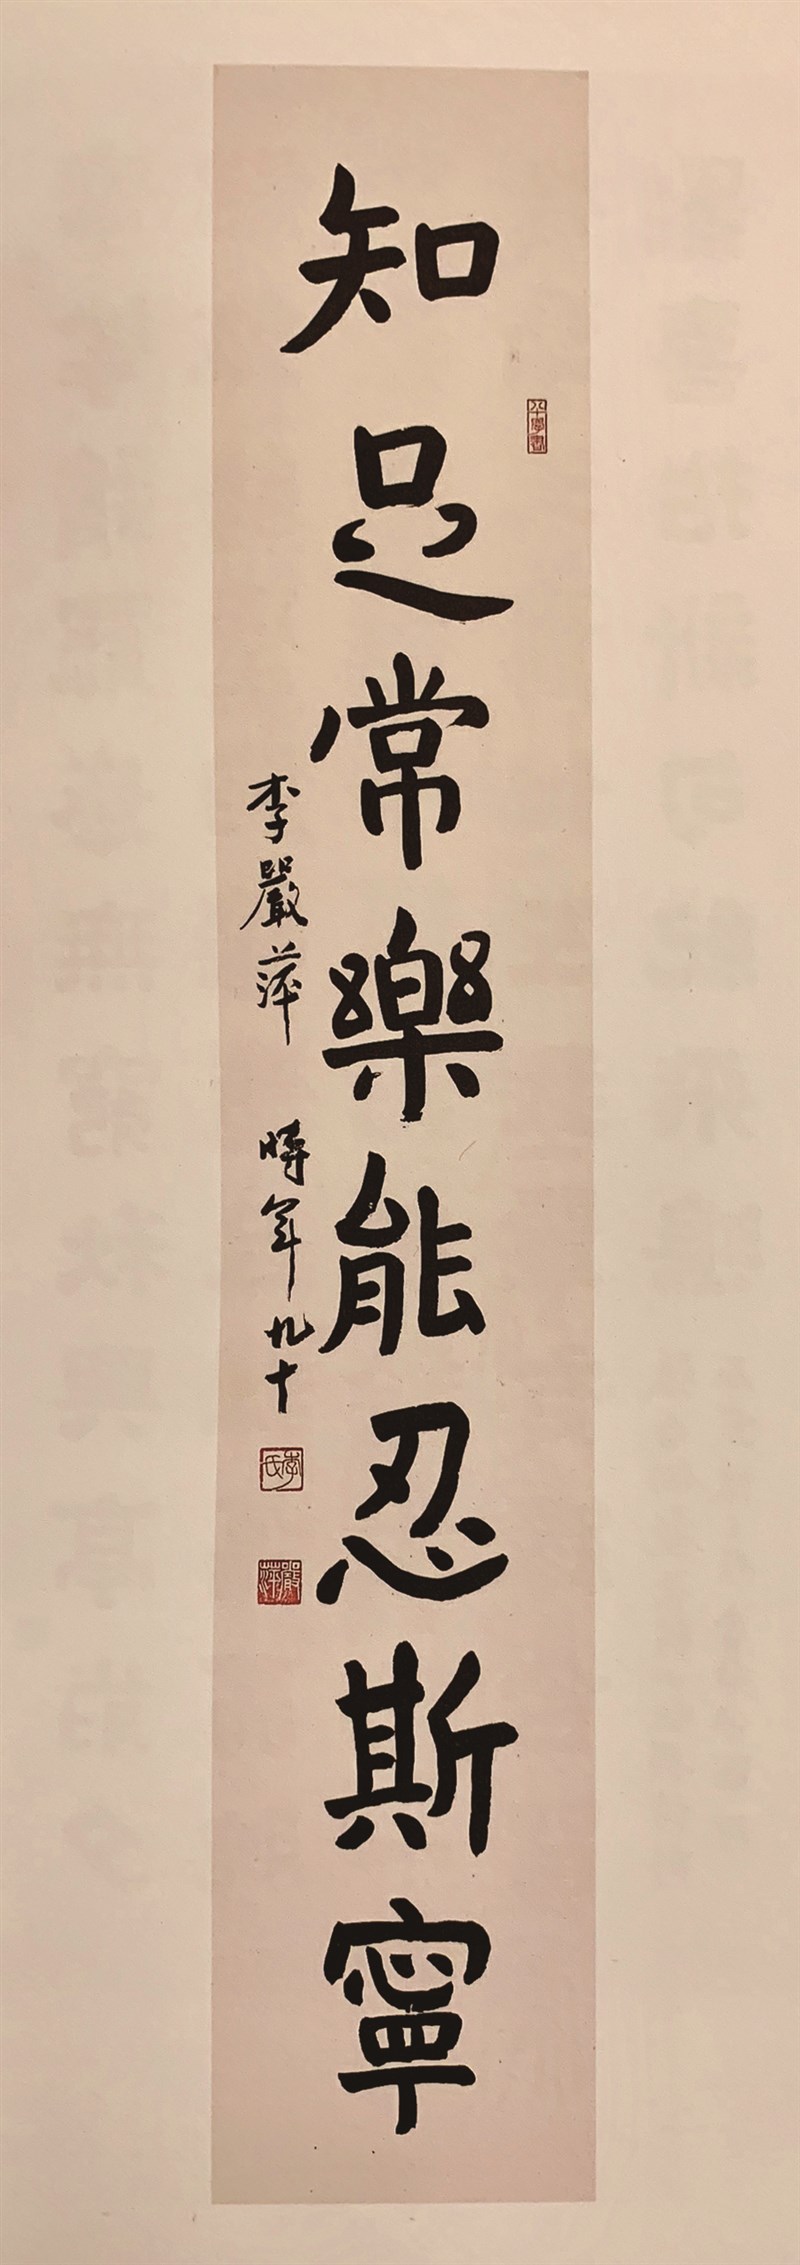 知足常樂能忍斯寧
八十學書
李嚴萍 時年九十
李氏
嚴萍